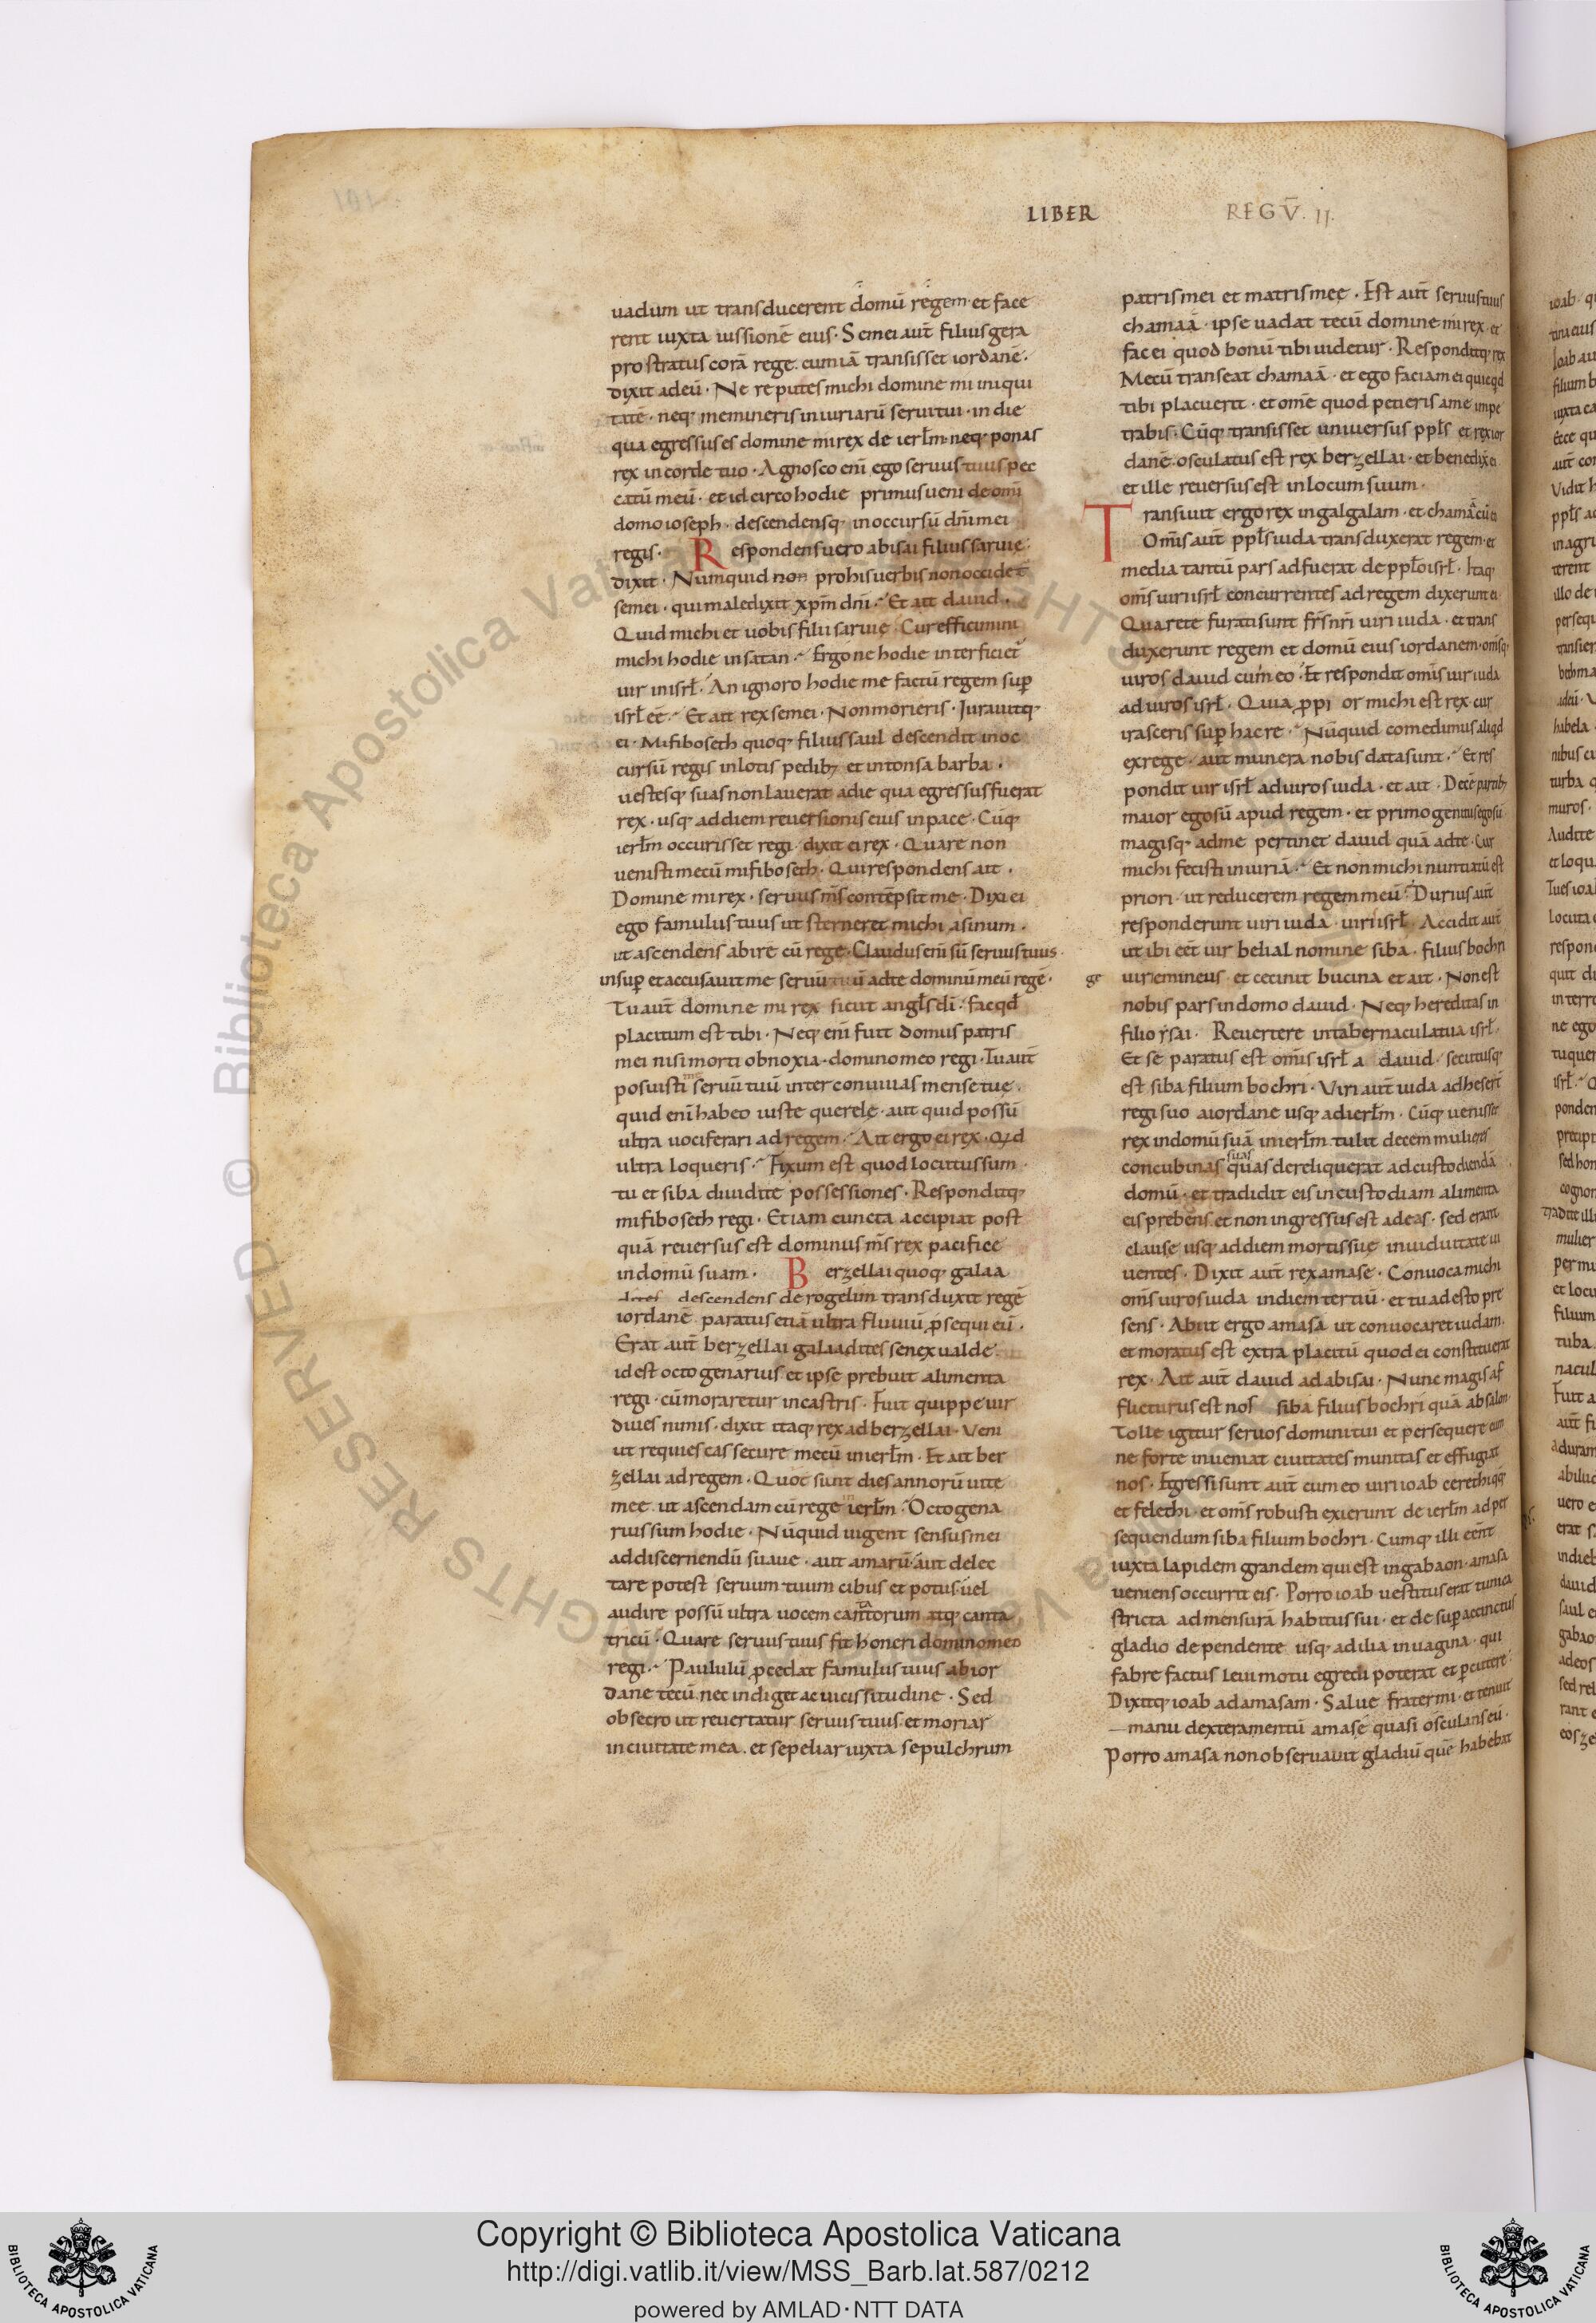 LIBER REGV̄. II.
uadum ut transducerent domū regem et face
rent iuxta iussionē eius. Semei aut̄ filius gera
prostratus corā rege. cum iā transisset iordanē.
dixit ad eū. Ne reputes michi domine mi iniqui
tatē. neq; memineris iniuriarū serui tui. in die
qua egressus es domine mi rex de ierl̄m. neq; ponas
rex in corde tuo. Agnosco eni ego seruus tuus pec
catū meū. et id circo hodie primus ueni de omi
domo ioseph. descendensq; in occursū dn̄i mei
regis. Respondens uero abisai filius saruie.
dixit. Numquid non pro his uerbis non occidet̄
semei. qui maledixit xp̄m dn̄i. Et ait dauid.
Quid michi et uobis filii saruię. Cur efficimini
michi hodie in satan. Ergo ne hodie interficiet̄
uir in isrł. An ignoro hodie me factū regem sup̄
isrł eē. Et ait rex semei. Non morieris. Iurauitq;
ei. Mifiboseth quoq; filius saul descendit in oc
cursū regis inlotis pedib; et intonsa barba.
uestesq; suas non lauerat a die qua egressus fuerat
rex. usq; ad diem reuersionis eius in pace. Cūq;
ierl̄m occurisset regi. dixit ei rex. Quare non
uenisti mecū mifiboseth. Qui respondens ait.
Domine mi rex. seruus ms̄ contēpsit me. Dixi ei
ego famulus tuus ut sterneret michi asinum.
ut ascendens abire cū rege. Claudus eni sū seruus tuus.
insup̄ et accusauit me seruū tuū ad te dominū meū regē.
Tu aut̄ domine mi rex sicut angls̄ di. fac qd̄
placitum est tibi. Neq; eni fuit domus patris
mei nisi morti obnoxia. domino meo regi. Tu aut̄
posuisti me seruū tuū inter conuiuas mense tuę.
quid eni habeo iuste querelę. aut quid possū
ultra uociferari ad regem. Ait ergo ei rex. Qd
ultra loqueris. Fixum est quod locutus sum.
tu et siba diuidite possessiones. Responditq;
mifiboseth regi. Etiam cuncta accipiat post
quā reuersus est dominus ms̄ rex pacifice
in domū suam. Berzellai quoq; galaa
dites descendens de rogelim transduxit regē
iordanē. paratus etiā ultra fluuiū p̄sequi eū.
Erat aut̄ berzellai galaadites senex ualde.
id est octogenarius. et ipse prebuit alimenta
regi. cū moraretur in castris. Fuit quippe uir
diues nimis. dixit itaq; rex ad berzellai. Veni
ut requiescas secure mecū in ierl̄m. Et ait ber
zellai ad regem. Quot sunt dies annorū uite
mee. ut ascendam cū rege in ierl̄m. Octogena
rius sum hodie. Nūquid uigent sensus mei
ad discernendū suaue. aut amarū. aut delec
tare potest seruum tuum cibus et potus. uel
audire possū ultra uocem cantorum atq; canta
tricū. Quare seruus tuus fit honeri domino meo
regi. Paululū p̄cedat famulus tuus ab ior
dane tecū. nec indiget ac uicissitudine. Sed
obsecro ut reuertatur seruus tuus. et moriar
in ciuitate mea. et sepeliar iuxta sepulchrum
patris mei et matris meę. Est aut̄ seruus tuus
chamaā. ipse uadat tecū domine mi rex. et
fac ei quod bonū tibi uidetur. Responditq; rex
Mecū transeat chamaā. et ego faciam ei quicqd
tibi placuerit. et omē quod petieris a me impe
trabis. Cūq; transisset uniuersus ppl̄s et rex ior
danē. osculatus est rex berzellai. et benedix̄ ei
et ille reuersus est in locum suum.
Transiuit ergo rex in galgalam. et chamaā cū eo
Omis aut̄ ppl̄s iuda transduxerat regem. et
media tantū pars adfuerat de ppl̄o isrł. Itaq;
oms̄ uiri isrł concurrentes ad regem dixerunt ei.
Quare te furati sunt frs̄ nr̄i uiri iuda. et trans
duxerunt regem et domū eius iordanem. omsq;
uiros dauid cum eo. Et respondit omīs uir iuda
ad uiros isrł. Quia p̄pi or michi est rex. cur
irasceris sup̄ hac re. Nūquid comedimus aliqd
ex rege. aut munera nobis data sunt. Et res
pondit uir isrł ad uiros iuda. et ait. Decē partib;
maior ego sū apud regem. et primogenitus ego sū
magisq; ad me pertinet dauid quā ad te. Cur
michi fecisti iniuriā. Et non michi nuntiatū est
priori. ut reducerem regem meū. Durius aut̄
responderunt uiri iuda. uiri isrł. Accidit aut̄
ut ibi eēt uir belial nomine siba. filius bochri
uir iemineus. et cecinit bucina et ait. Non est
nobis pars in domo dauid. Neq; hereditas in
filio ysai. Reuertere in tabernacula tua isrł.
Et separatus est omīs isrł a dauid. secutusq;
est siba filium bochri. Viri aut̄ iuda adheser̄t
regi suo a iordane usq; ad ierl̄m. Cūq; uenisset
rex in domū suā in ierl̄m. tulit decem mulieres
concubinas suas quas dereliquerat ad custodiendā
domū. et tradidit eis in custodiam alimenta
eis prebens. et non ingressus est ad eas. sed erant
clause usq; ad diem mortis suę in uiduitate ui
uentes. Dixit aut̄ rex amase. Conuoca michi
oms̄ uiros iuda in diem tertiū. et tu adesto pre
sens. Abiit ergo amasa ut conuocaret iudam.
et moratus est extra placitū quod ei constituerat
rex. Ait aut̄ dauid ad abisai. Nunc magis af
flicturus est nos siba filius bochri quā absalon.
Tolle igitur seruos domini tui et persequere eum
ne forte inueniat ciuitates munitas et effugiat
nos. Egressi sunt aut̄ cum eo uiri ioab cerethi qq;
et felethi. et oms̄ robusti exierunt de ierl̄m ad per
sequendum siba filium bochri. Cumq; illi eēnt
iuxta lapidem grandem qui est in gabaon. amasa
ueniens occurrit eis. Porro ioab uestitus erat tunica
stricta ad mensurā habitus sui. et desup accinctus
gladio dependente usq; ad ilia in uagina. qui
fabrefactus leui motu egredi poterat et p̄cutere.
Dixitq; ioab ad amasam. Salue frater mi. et tenuit
manu dextera mentū amasę quasi osculans eū.
Porro amasa non obseruauit gladiū quē habebat
Copyright © Biblioteca Apostolica Vaticana
http://digi.vatlib.it/view/MSS_Barb.lat.587/0212
powered by AMLAD·NTT DATA